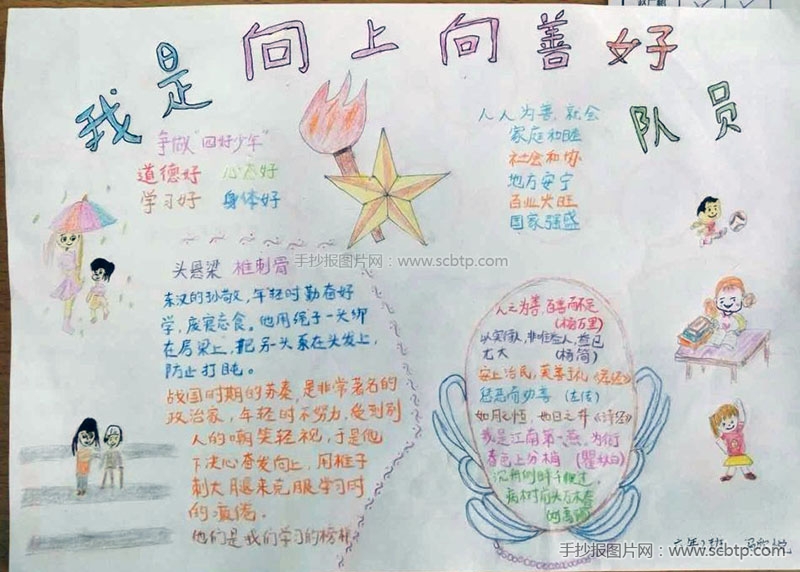 我是向上向善好
队员
争做"四好少年"
道德好 心态好
学习好 身体好
人人为善,就会
家庭和睦
社会和协
地方安宁
百业兴旺
国家强盛
手抄报图片网:www.scbtp.com
头悬梁 椎刺骨
东汉的孙敬,年轻时勤奋好
学,废寝忘食。他用绳子一头绑
在房梁上,把另一头系在头发上,
防止打盹。
战国时期的苏秦,是非常著名的
政治家,年轻时不努力,受到别
人的嘲笑轻视,于是他
下决心奋发向上,用椎子
刺大腿来克服学习时
的疲倦。
他们是我们学习的榜样
人之为善,百善而不足
(杨万里)
尤大 (杨简)
安上治民,莫善于礼
惩恶而劝善 (左传)
如月之恒,如日之升《诗经》
我是江南第一燕,为衔
春色上云梢 (瞿秋白)
沉舟侧畔千帆过,
病树前头万木春
(刘禹锡)
手抄报图片网:www.scbtp.com